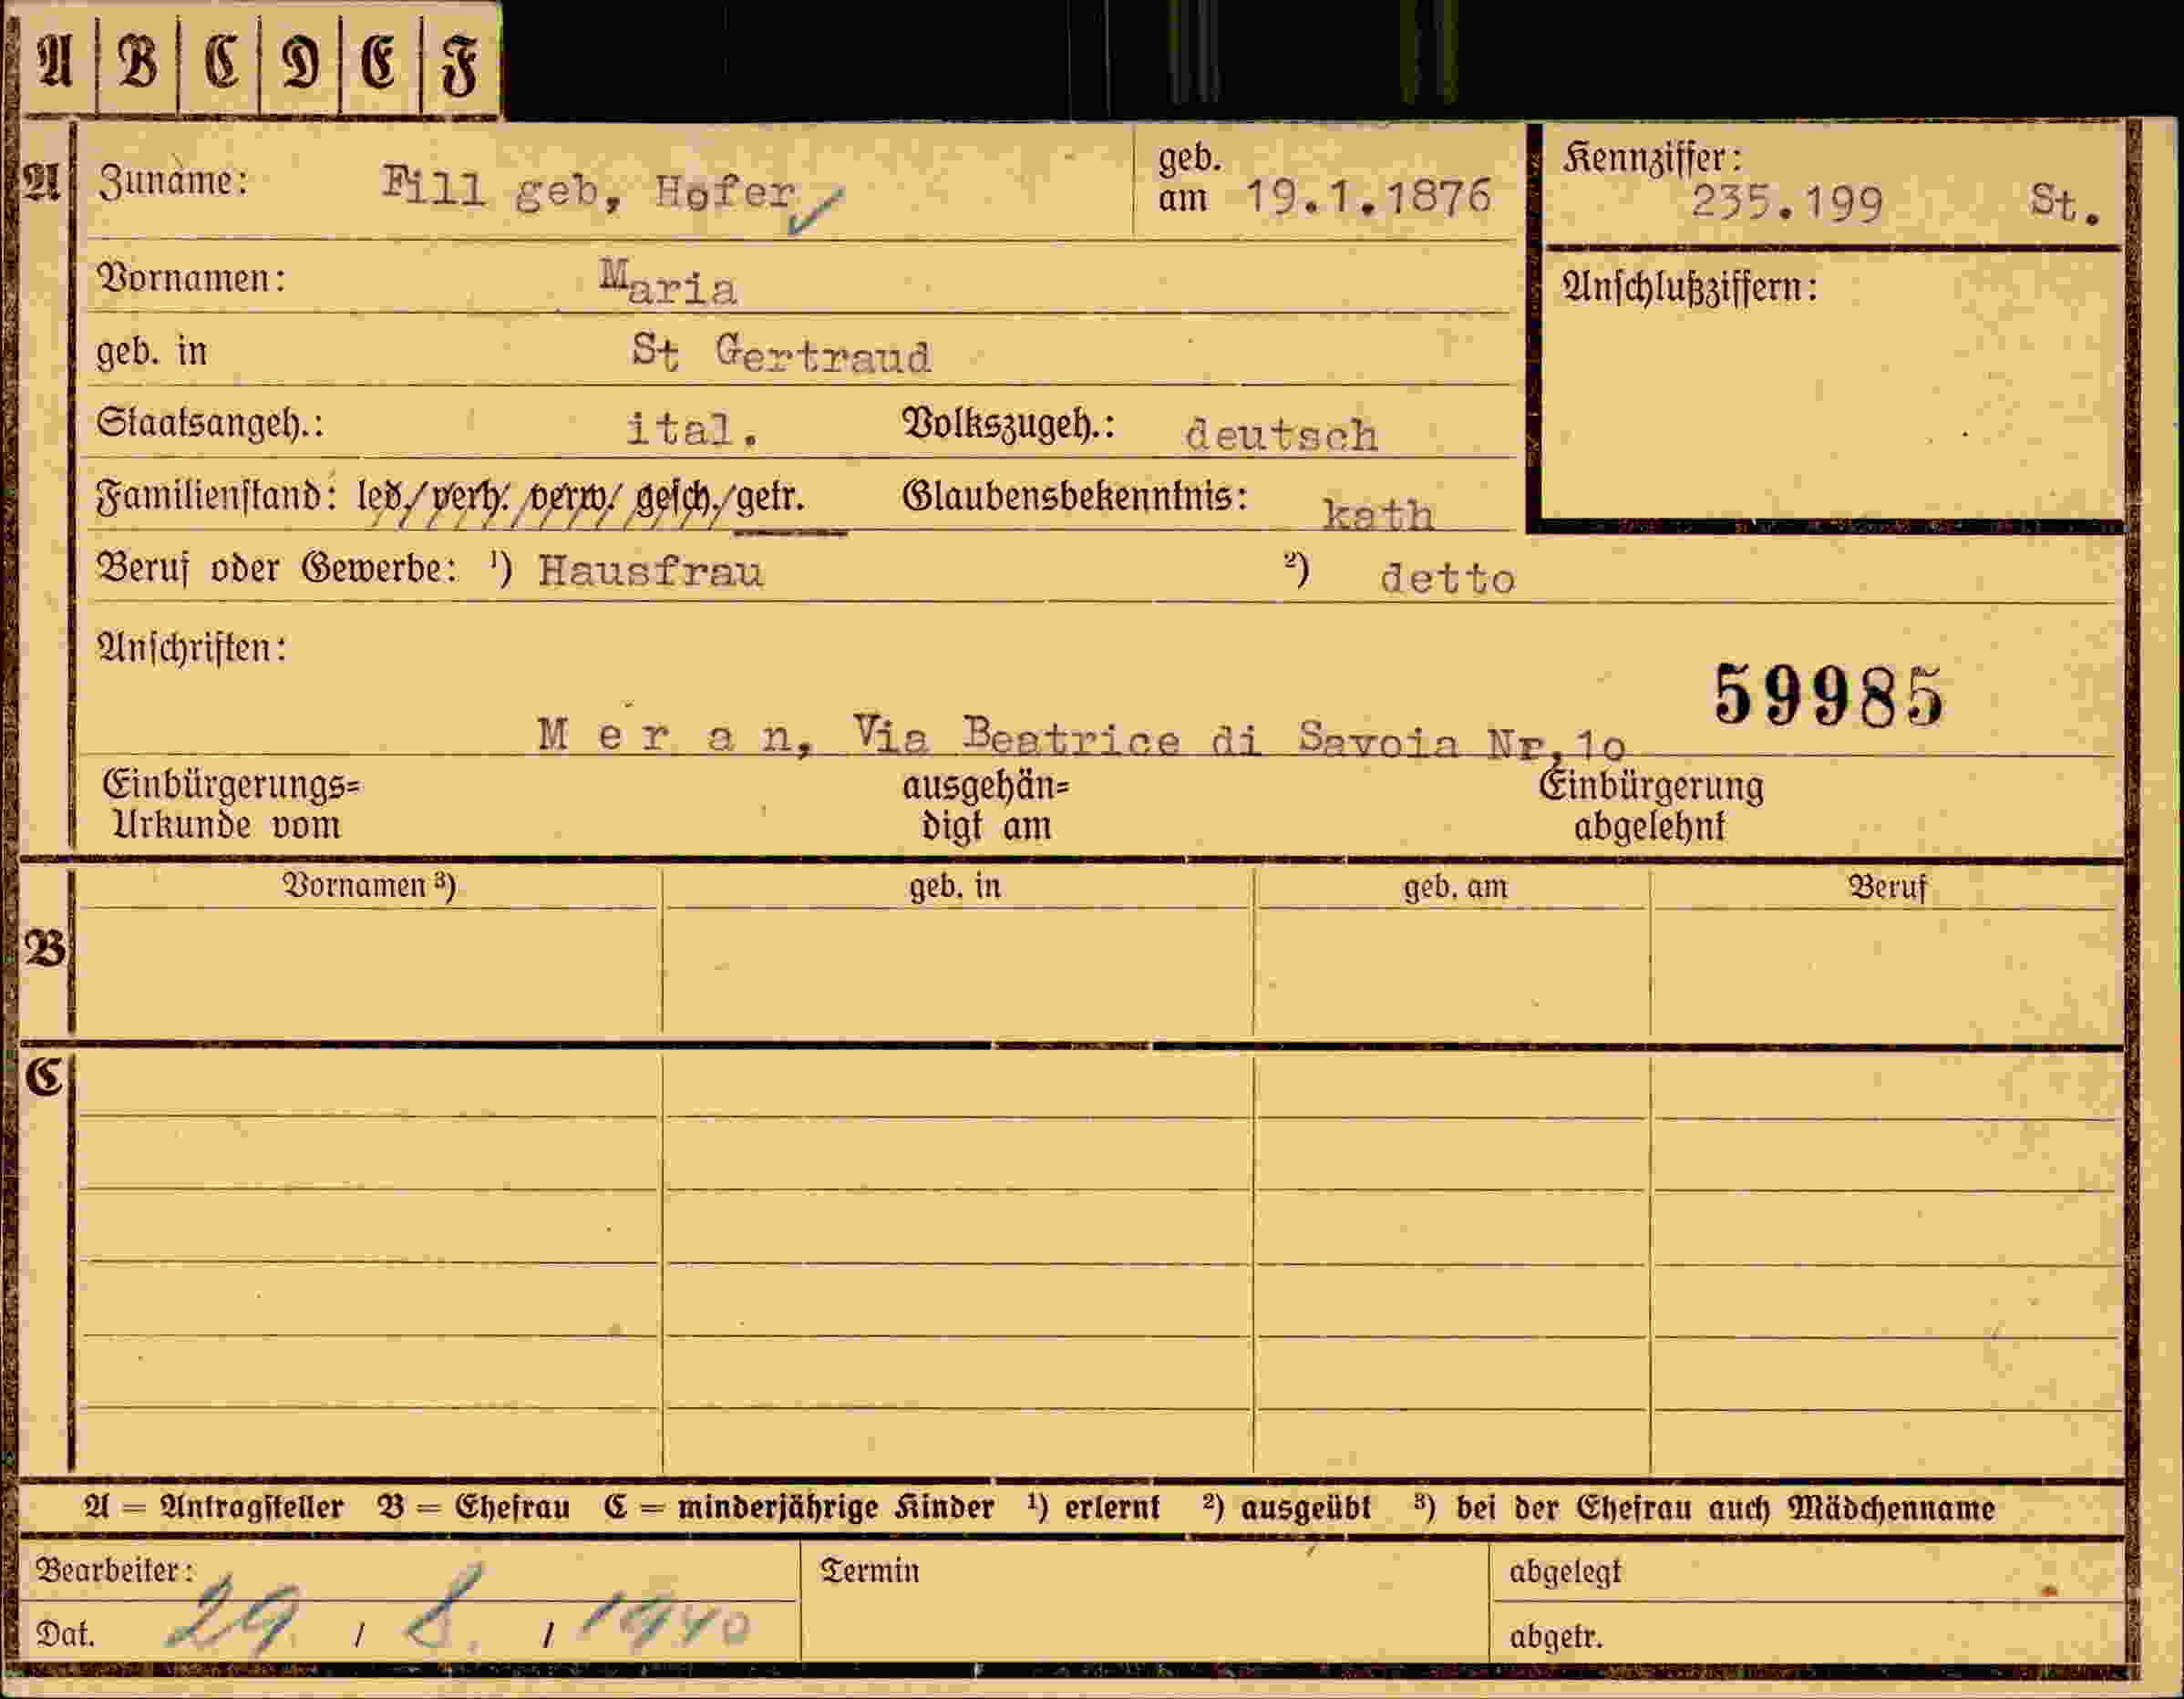 A B C D E F
A Zuname: Fill geb, Hofer geb. am 19.1.1876 Kennziffer: 235.199 St.
Vornamen: Maria Anschlußziffern:
geb. in St Gertraud
Staatsangeh.: ital. Volkszugeh.: deutsch
Familienstand: led./verh./verw./gesch./getr. Glaubensbekenntnis: kath
Beruf oder Gewerbe: ¹) Hausfrau ²) detto
Anschriften:
59985
M e r a n, Via Beatrice di Savoia Nr,10
Einbürgerungs= ausgehän= Einbürgerung
Urkunde vom digt am abgelehnt
Vornamen ³) geb. in geb. am Beruf
B
C
A = Antragsteller B = Ehefrau C = minderjährige Kinder ¹) erlernt ²) ausgeübt ³) bei der Ehefrau auch Mädchenname
Bearbeiter: Termin abgelegt
Dat. 29. / 8. / 1940 abgetr.